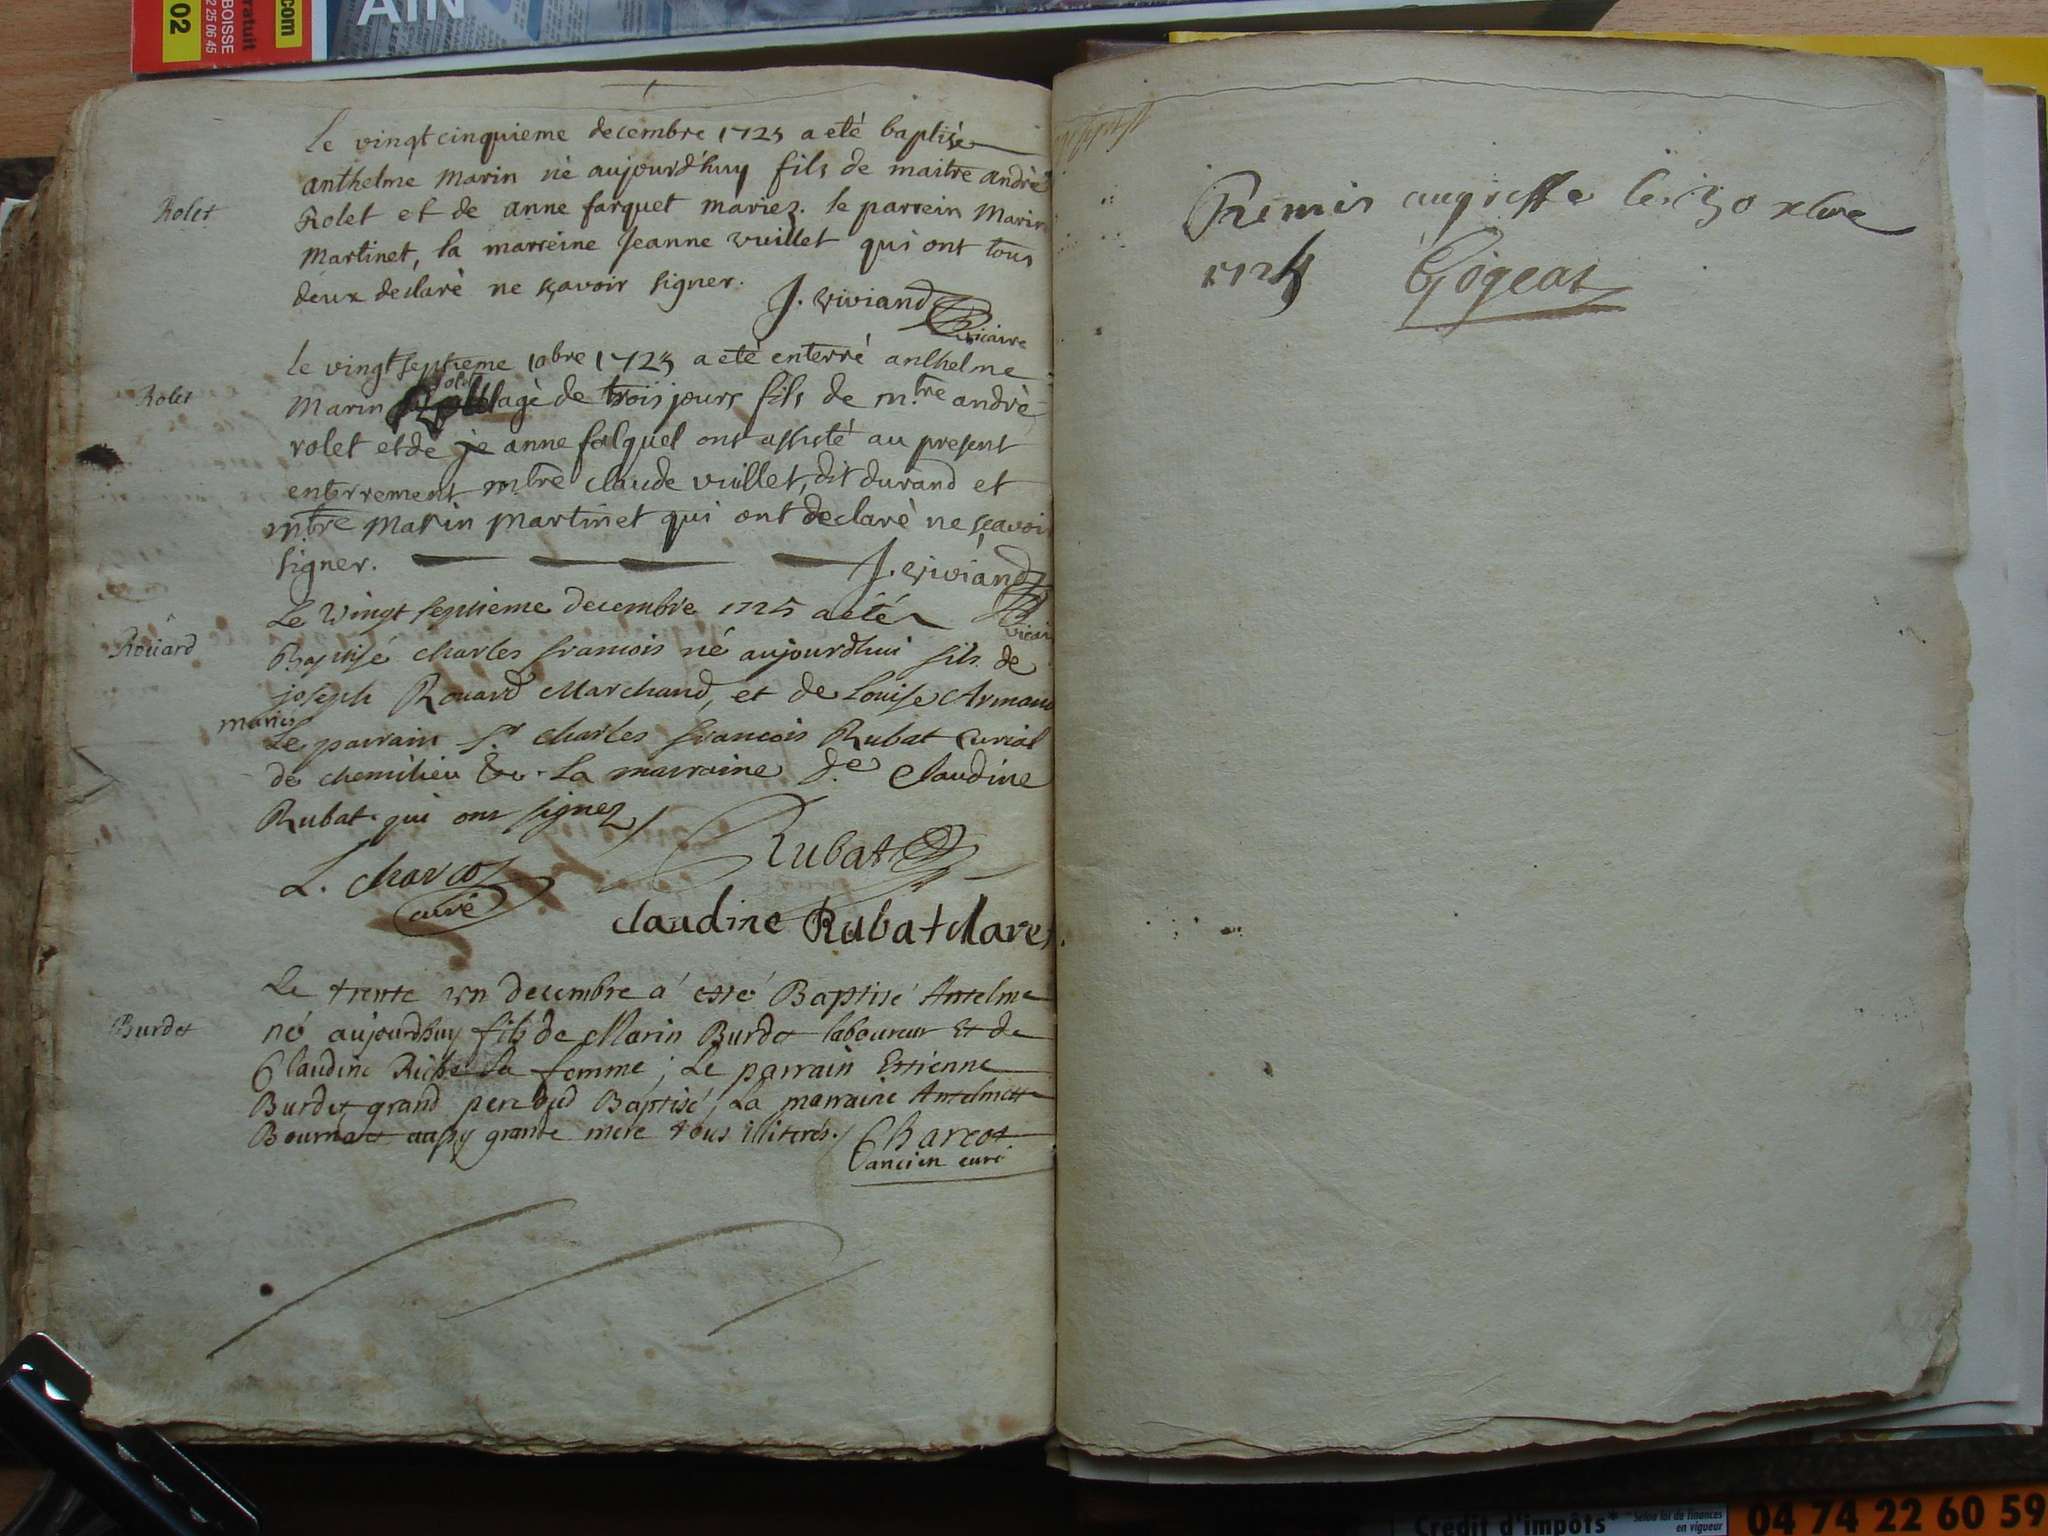 AIN
.com
gratuit
BOISSE
2 25 06 45
02
Le vingtcinquieme decembre 1725 a eté baptisé
anthelme Marin né aujourd'huy fils de maitre andré
Rolet
Rolet et de anne farquet mariez. le parrein Marin
Martinet, la marreine Jeanne vuillet qui ont tous
deux declaré ne sçavoir signer.
J. viviand
vicaire
le vingtseptieme 10bre 1725 a eté enterré anthelme
Rolet
Marin rolet agé de trois jours fils de m.tre andré
rolet et de je anne falquet ont assisté au present
enterrement m.tre claude vuillet, dit durand et
m.tre Marin Martinet qui ont declaré ne sçavoir
signer.
J. viviand
vicai
Le Vingt septieme decembre 1725 a eté
Roüard
Baptisé charles francois né aujourdhui fils de
joseph Rouard Marchand, et de Louise Armand
mariés
Le parrain S.r charles francois Rubat curial
de chemilieu &c. La marraine d.e Claudine
Rubat qui ont signez
L. Charcot
curé
Rubat
claudine Rubat Mares
Le trente un decembre á esté Baptisé Antelme
Burdet
né aujourdhuy fils de Marin Burdet laboureur Et de
Claudine Riche sa femme; Le parrain Estienne
Burdet grand pere dud Baptisé, La marraine Antelmette
Bournet aussy grande mere tous illiterés.
Charcot
ancien curé
Remis au greffe le 30 xbre
1725 Gogeat
Crédit d'impôts*
*Selon loi de finances
en vigueur
04 74 22 60 59